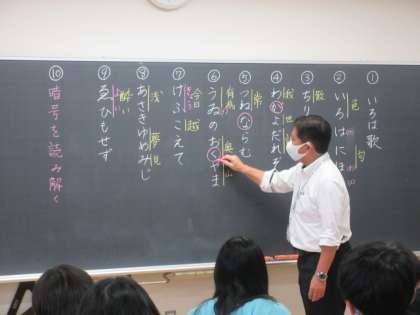 ① いろは歌
② いろはにほ
色 匂
③ ちり
散
④ わがよだれぞ
我 世
⑤ つねならむ
常
⑥ うゐのおくやま
有為 奥山
⑦ けふこえて
今日 越
きょう
⑧ あさきゆめみじ
浅 夢見
⑨ ゑひもせず
酔い
⑩ 暗号を読み解く